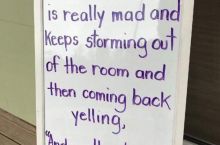 is really mad and
Keeps storming out
of the room and
then coming back
yelling,
"And